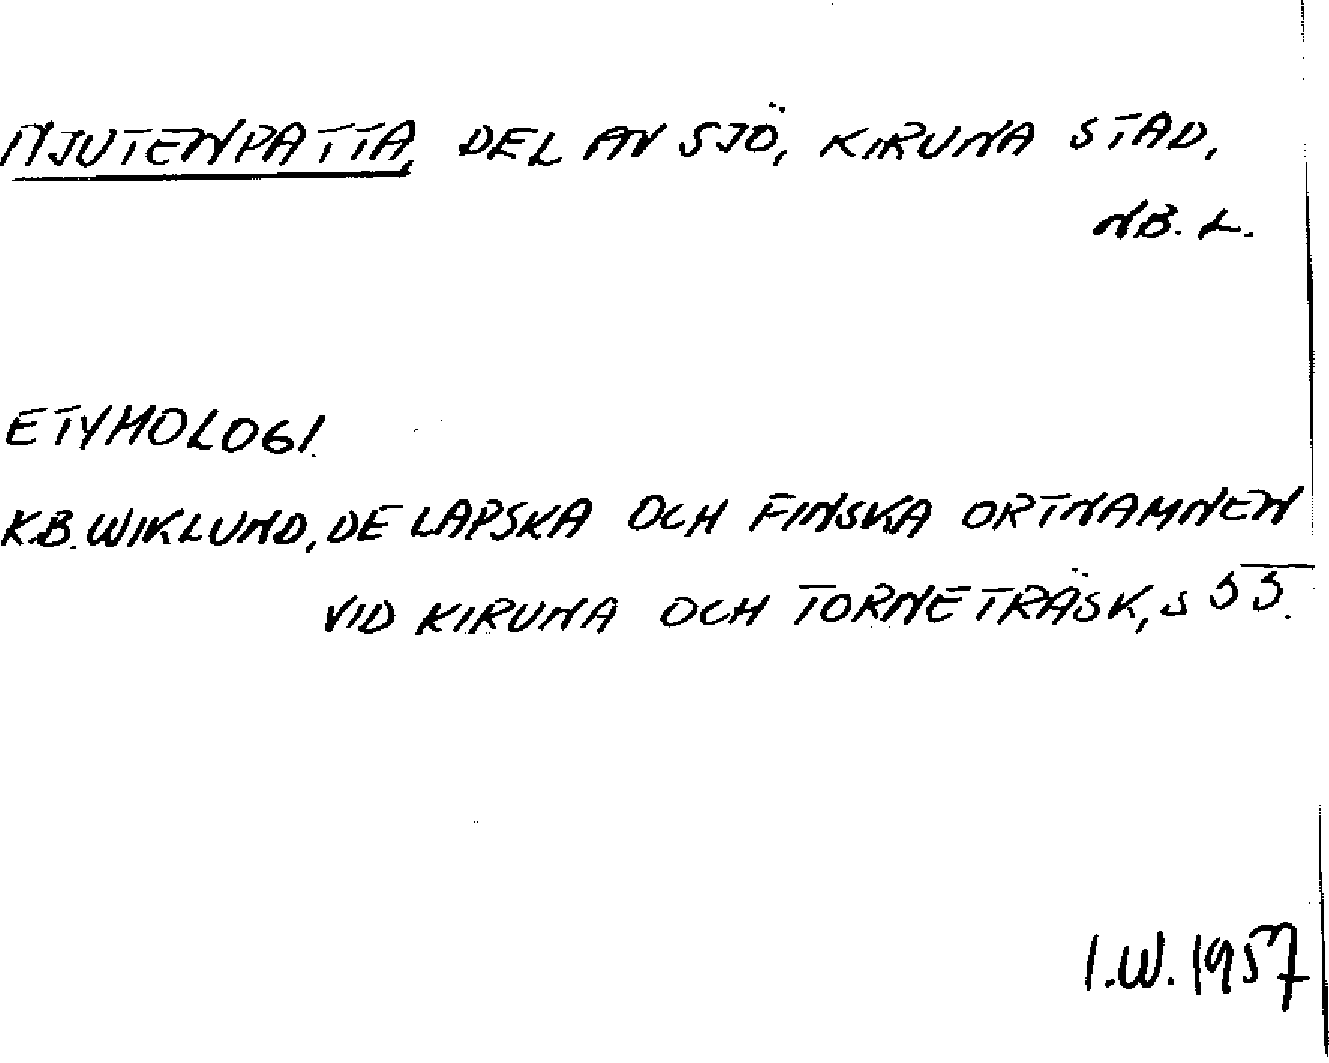 NJUTENPATTA, DEL AV SJÖ, KIRUNA STAD,
NB. L.
ETYMOLOGI.
K.B. WIKLUND, DE LAPSKA OCH FINSKA ORTNAMNEN
VID KIRUNA OCH TORNETRÄSK, S 55.
I.W. 1957